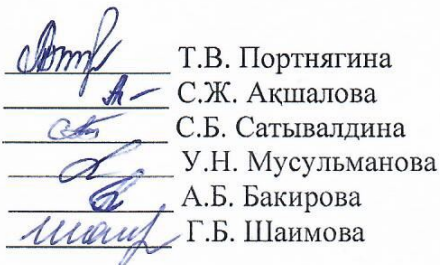 Т.В. Портнягина
С.Ж. Ақшалова
С.Б. Сатывалдина
У.Н. Мусульманова
А.Б. Бакирова
Г.Б. Шаимова